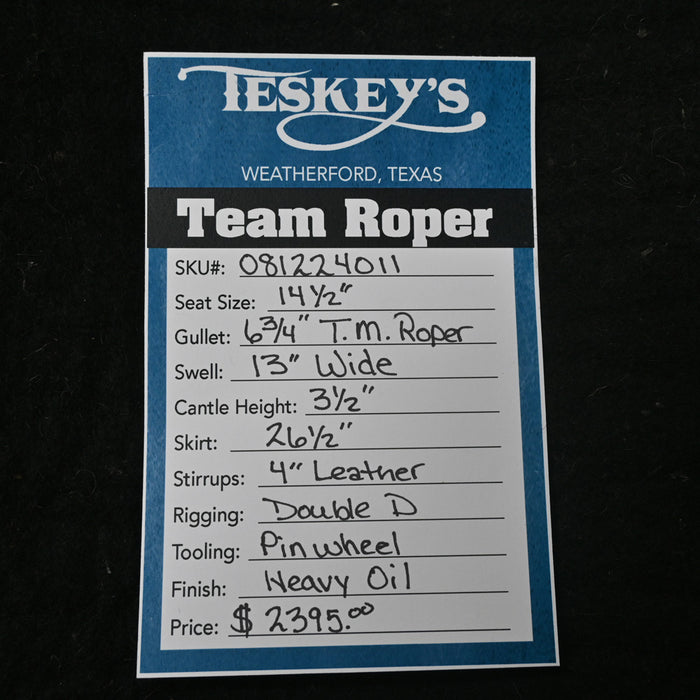 TESKEY'S
WEATHERFORD, TEXAS
Team Roper
SKU#: 081224011
Seat Size: 14 1/2"
Gullet: 6 3/4" T.M. Roper
Swell: 13" Wide
Cantle Height: 3 1/2"
Skirt: 26 1/2"
Stirrups: 4" Leather
Rigging: Double D
Tooling: Pinwheel
Finish: Heavy Oil
Price: $ 2395.00